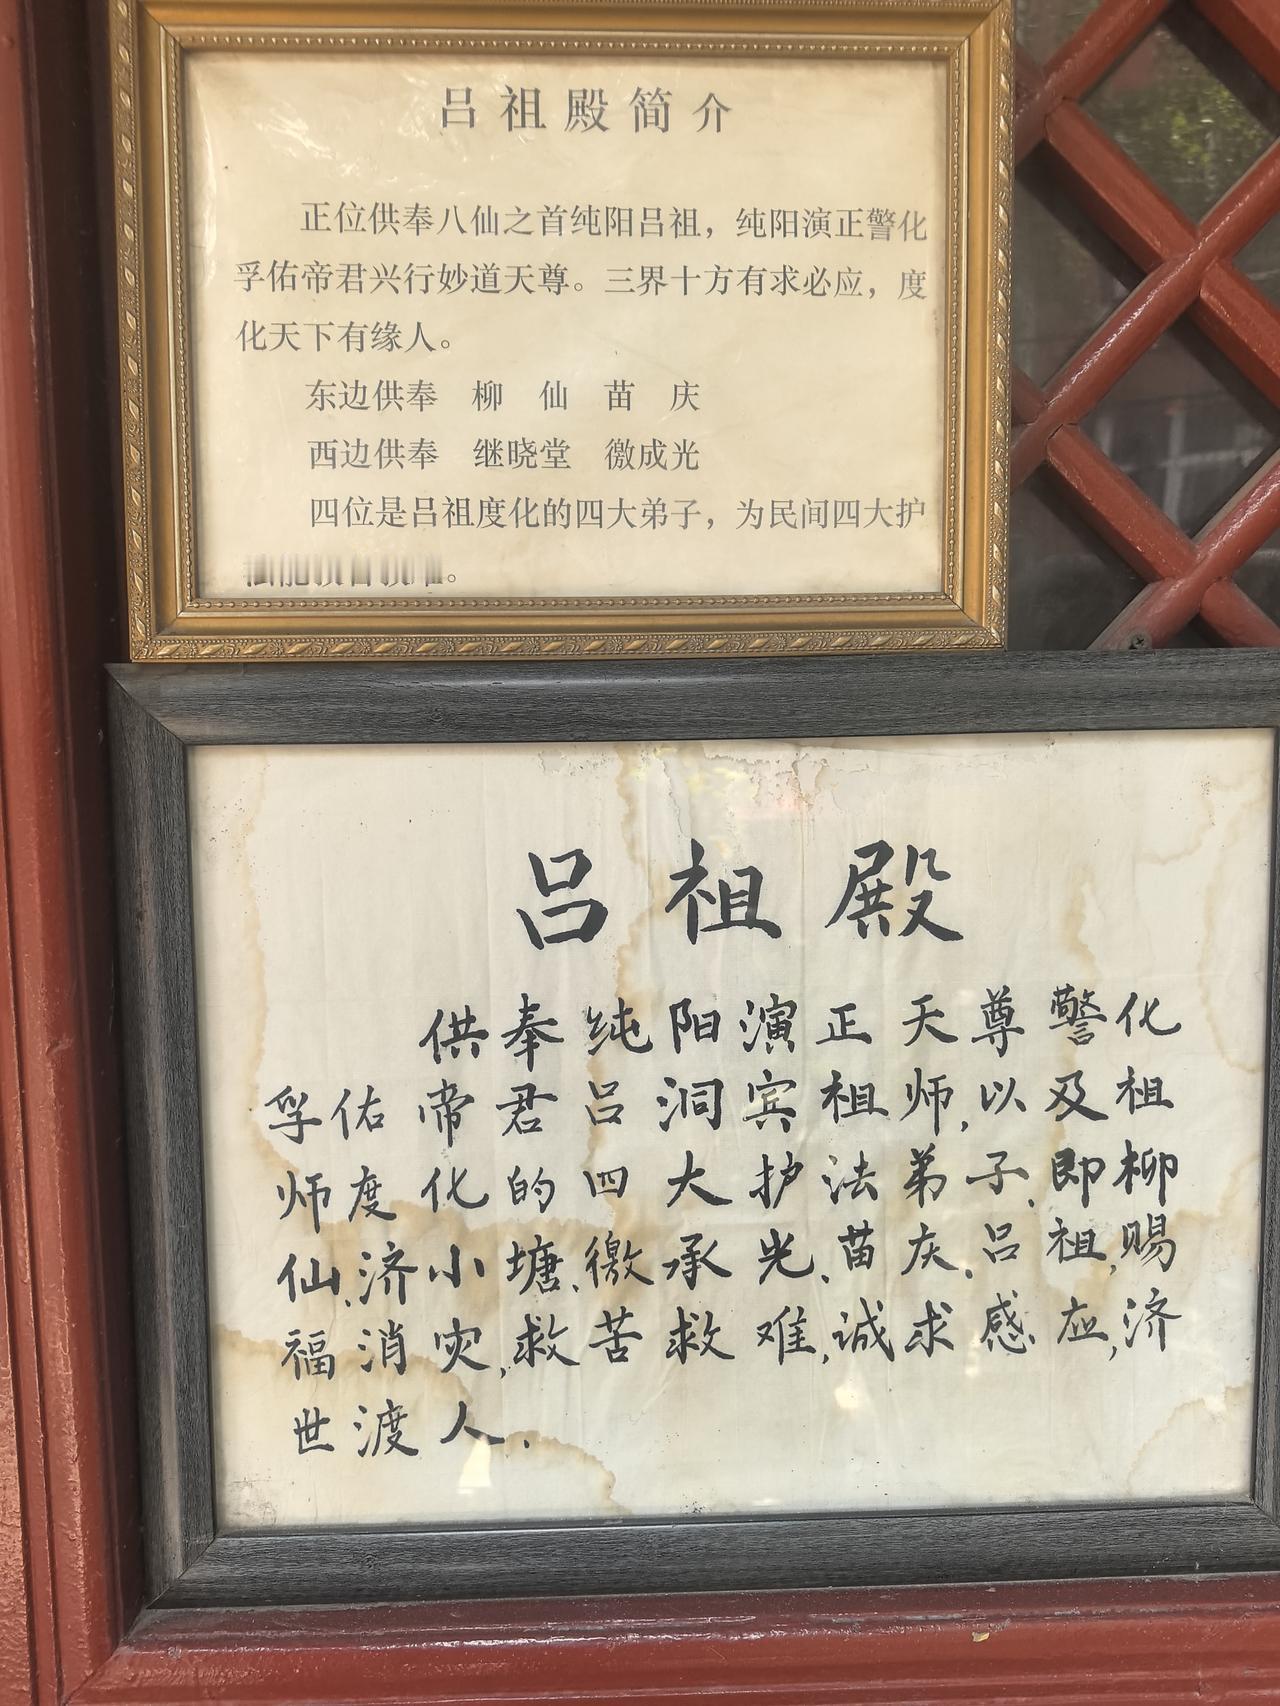 吕祖殿简介
正位供奉八仙之首纯阳吕祖，纯阳演正警化
孚佑帝君兴行妙道天尊。三界十方有求必应，度
化天下有缘人。
东边供奉 柳 仙 苗 庆
西边供奉 继晓堂 徽成光
四位是吕祖度化的四大弟子，为民间四大护
吕祖殿
供奉纯阳演正天尊警化
孚佑帝君吕洞宾祖师,以及祖
师度化的四大护法弟子,即柳
仙、济小塘、徽承光、苗庆、吕祖,赐
福消灾,救苦救难,诚求感应,济
世渡人.